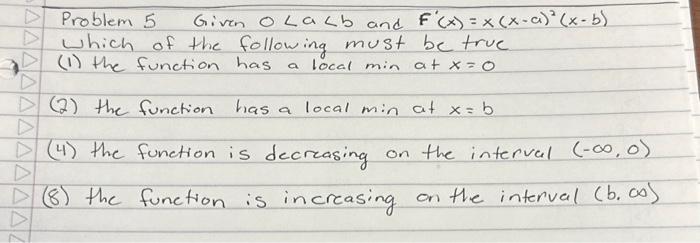 Problem 5 Given 0 < a < b and F'(x) = x(x-a)²(x-b)
which of the following must be true
(1) the function has a local min at x = 0
(2) the function has a local min at x = b
(4) the function is decreasing on the interval (-∞, 0)
(8) the function is increasing on the interval (b, ∞)